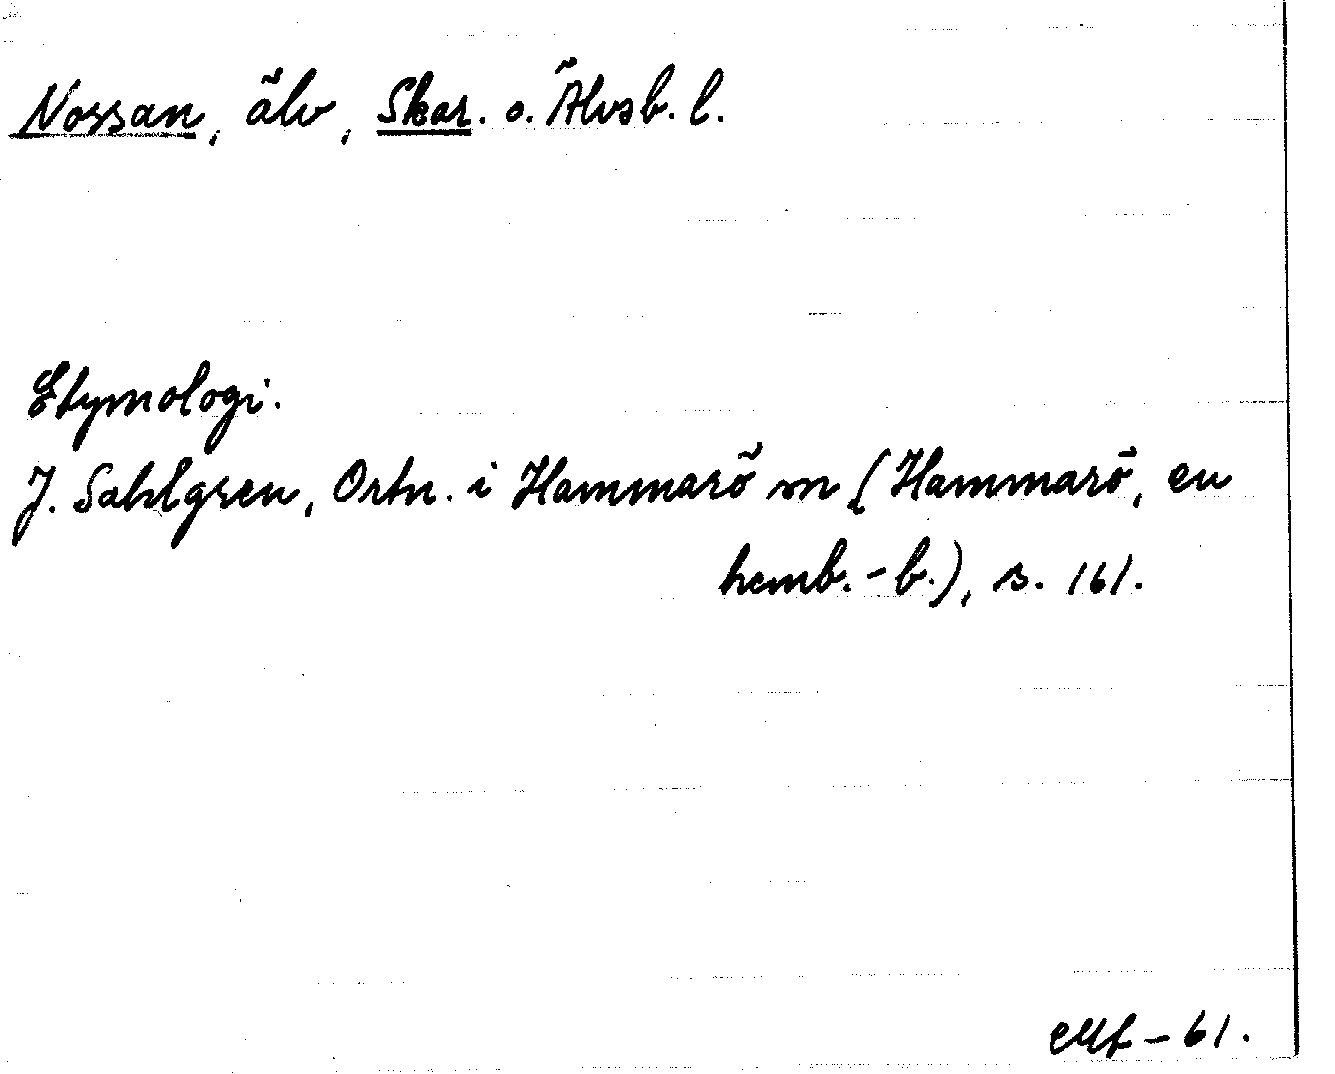 Nossan, älv, Skar. o. Älvsb. l.
Etymologi.
J. Sahlgren, Ortn. i Hammarö sn (Hammarö, en
hemb.-b.), s. 161.
-61.